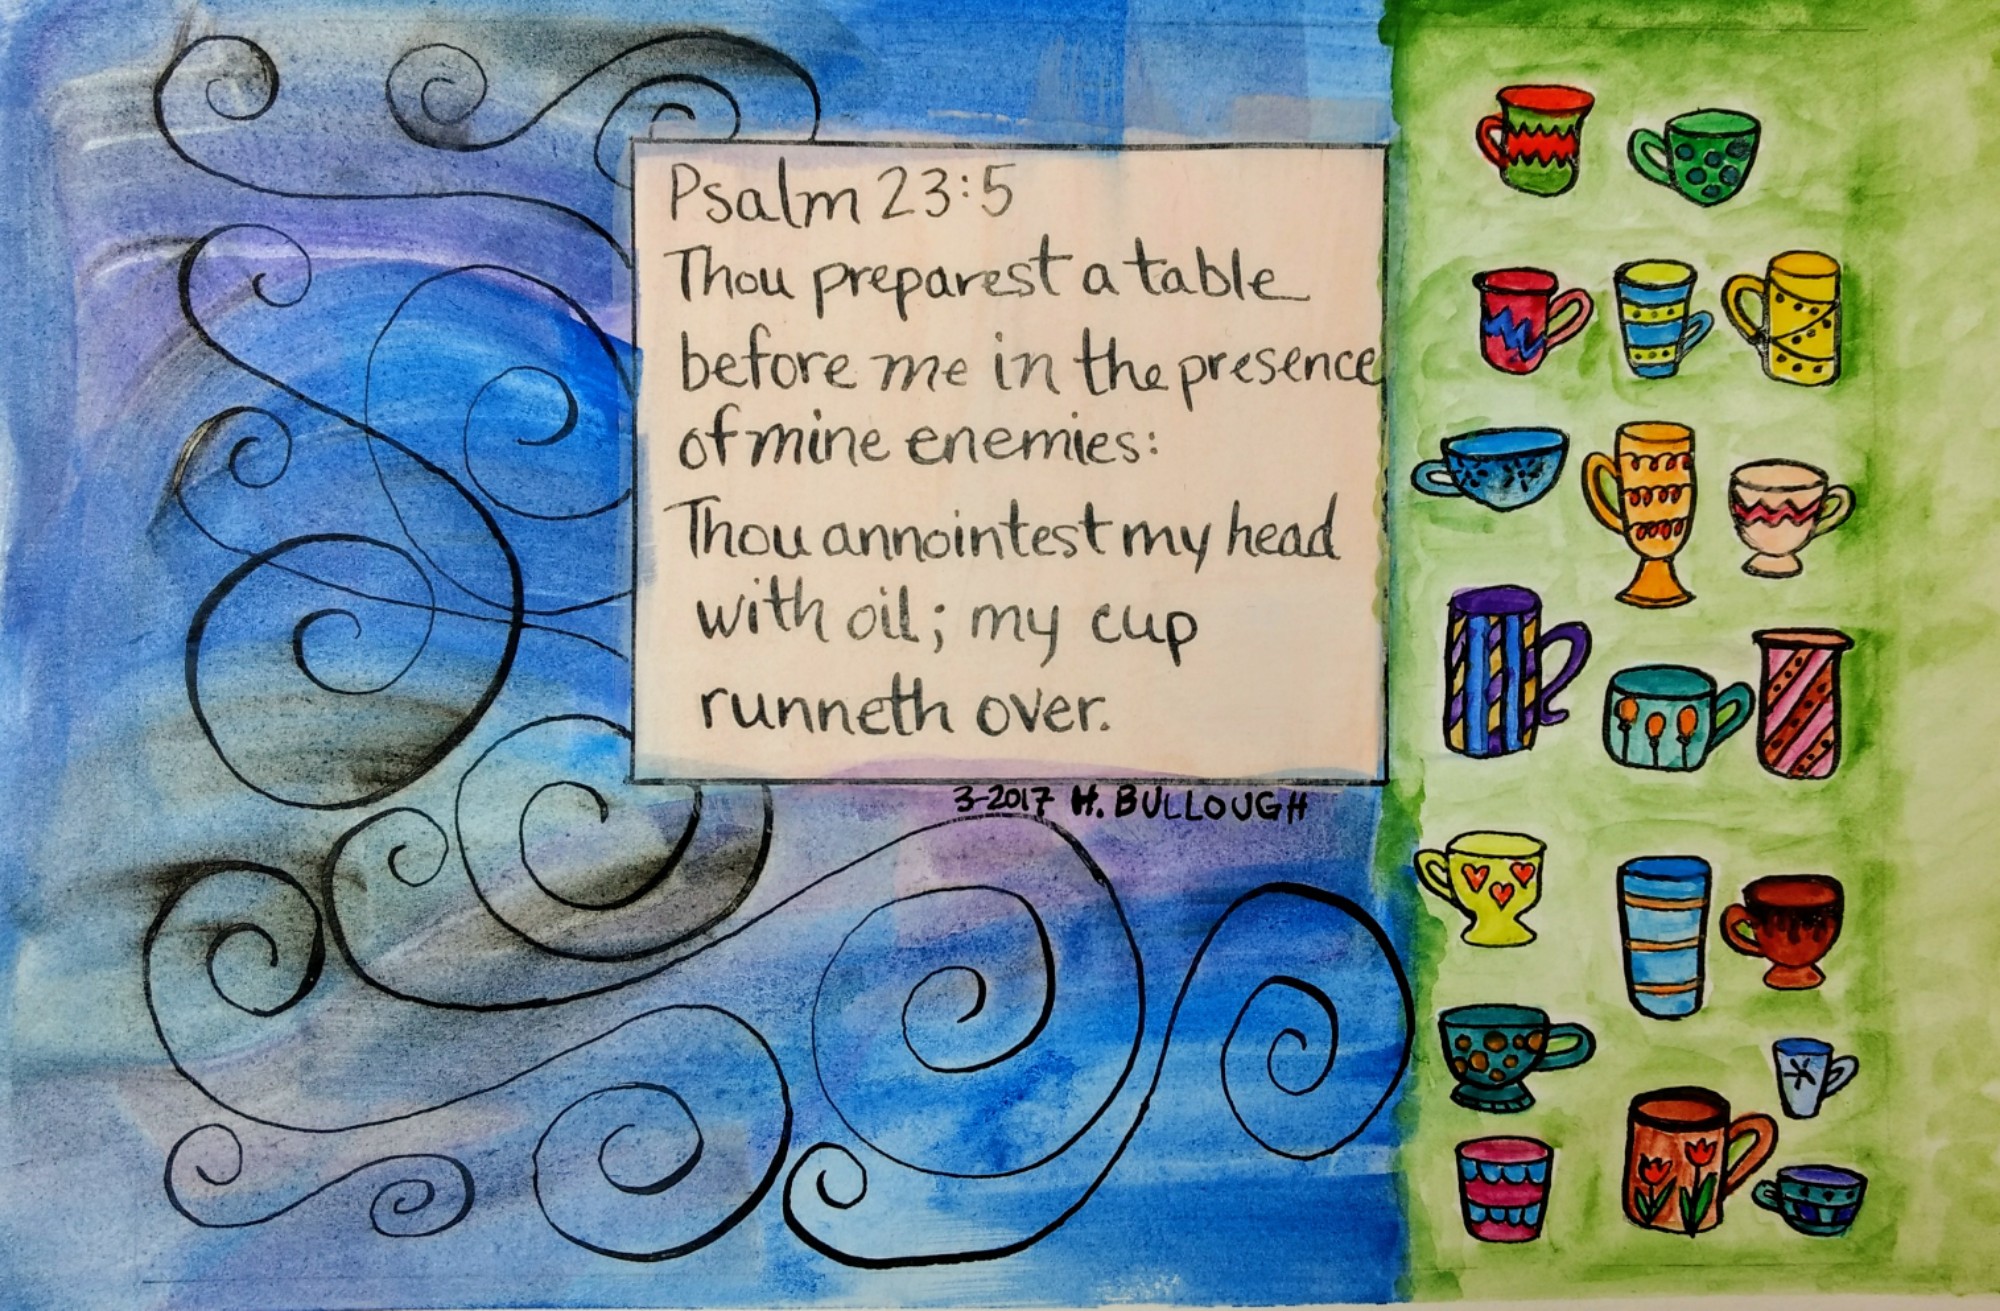 Psalm 23:5
Thou preparest a table
before me in the presence
of mine enemies:
Thou annointest my head
with oil; my cup
runneth over.
3-2017 H. BULLOUGH